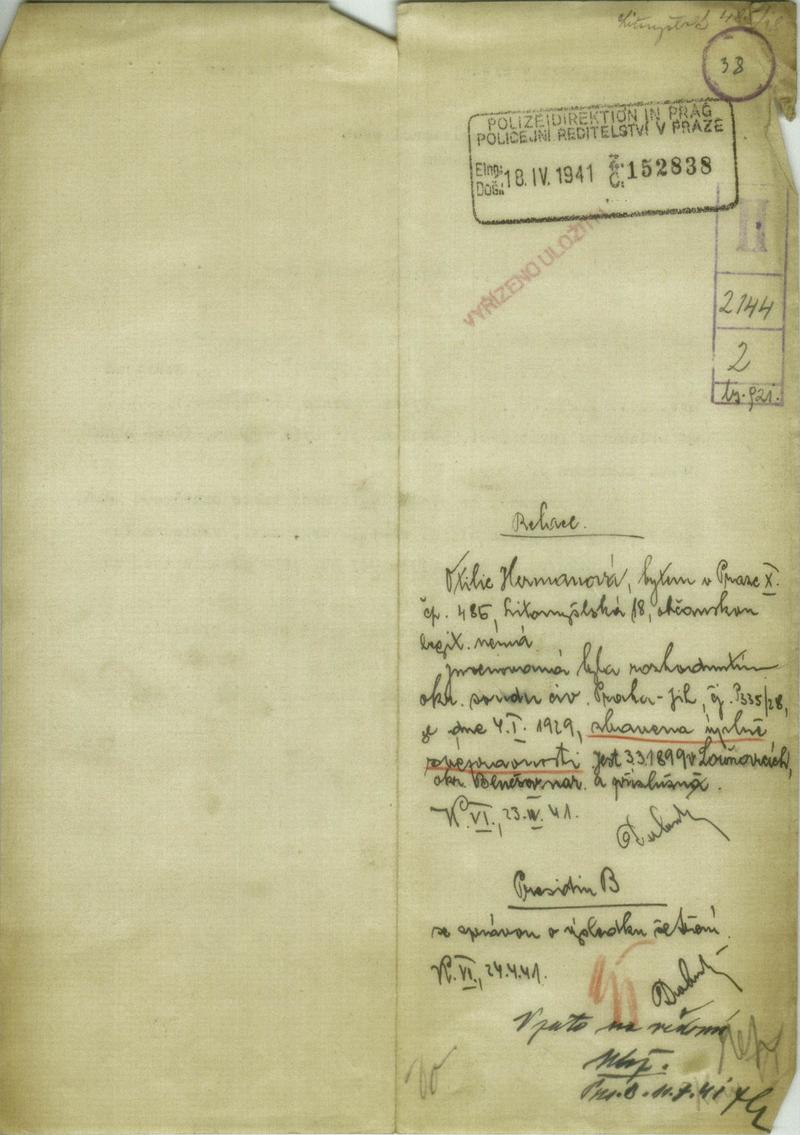 38
POLIZEIDIREKTION IN PRAG
POLICEJNÍ ŘEDITELSTVÍ V PRAZE
Eing:
Došlo: 18. IV. 1941 Č: 152838
VYŘÍZENO ULOŽITI
II
2144
2
Relace.
Otilie Hermanová, bytem v Praze X.
čp. 485, Litomyšlská 18, občanskou
legit. nemá.
Jmenovaná byla rozhodnutím
okr. soudu civ. Praha-jih, čj. P335/28,
ze dne 4.I. 1929, zbavena úplně
svéprávnosti. Jest 3.3.1899 v Louňovicích,
okr. Benešov nar. a příslušná.
VI., 23.IV.41.
Presidiu B
se zprávou o výsledku šetření.
VI., 24.4.41.
Vzato na vědomí
Pres. B.